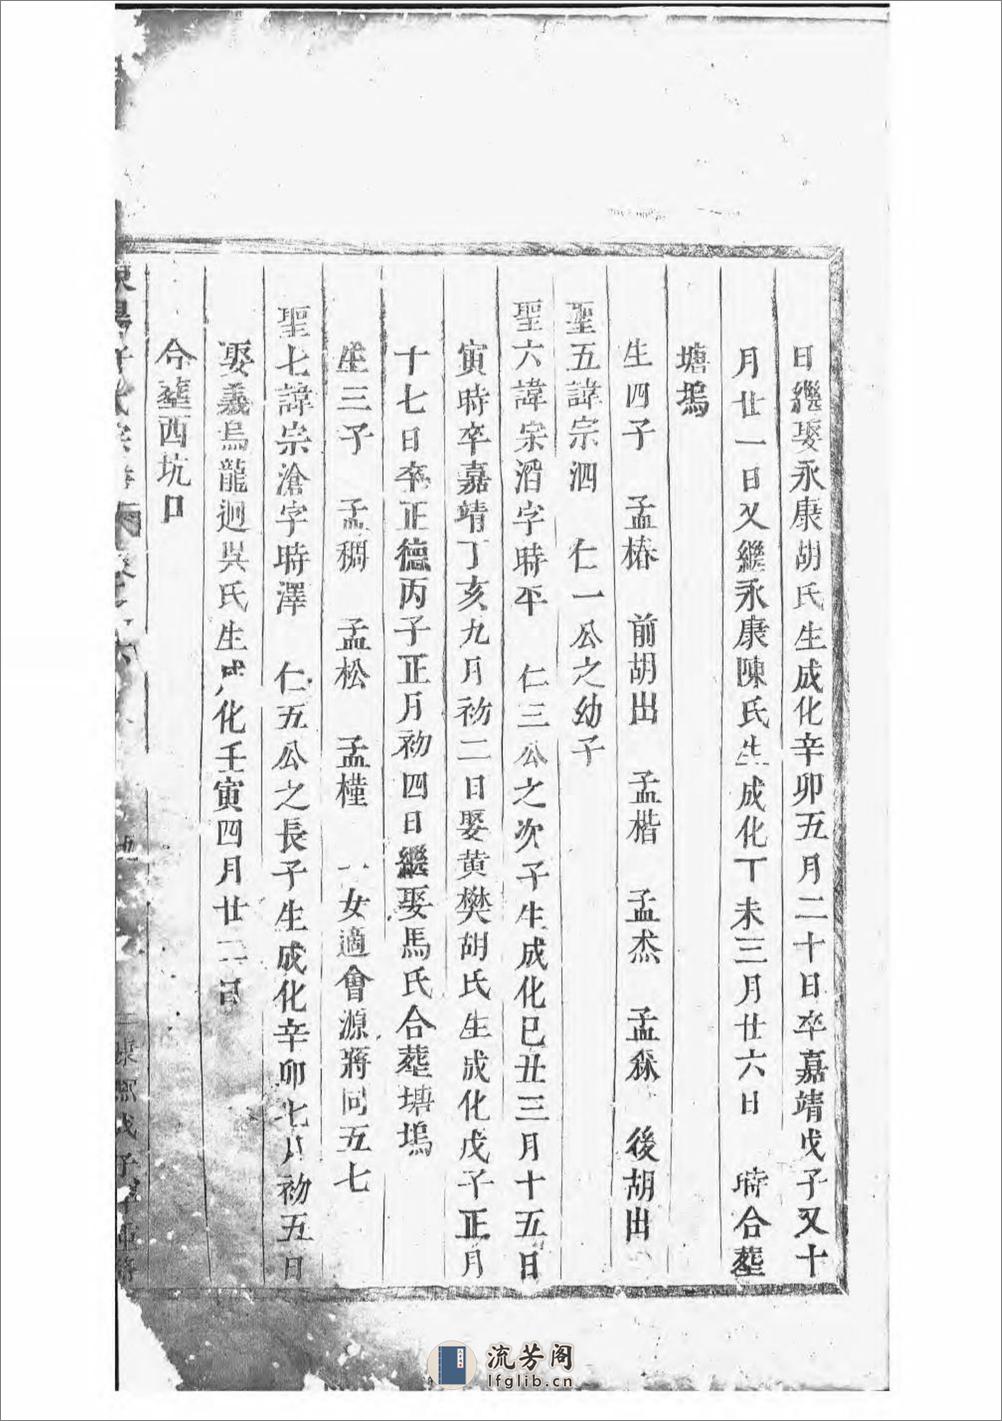 日繼娶永康胡氏生成化辛卯五月二十日卒嘉靖戊子又十
月廿一日又繼永康陳氏生成化丁未三月廿六日 時合塟
塘塢
生四子 孟椿 前胡出 孟楷 孟杰 孟森 後胡出
聖五諱宗泗 仁一公之幼子
聖六諱宗滔字時平 仁三公之次子生成化巳丑三月十五日
寅時卒嘉靖丁亥九月初二日娶黄樊胡氏生成化戊子正月
十七日卒正德丙子正月初四日繼娶馬氏合塟塘塢
生三子 孟稠 孟松 孟槿 一女適會源蔣同五七
聖七諱宗滄字時澤 仁五公之長子生成化辛卯七月初五日
娶義烏龍迴吳氏生成化壬寅四月廿二日
合塟西坑口
康熙戊子
流芳阁
lfglib.cn